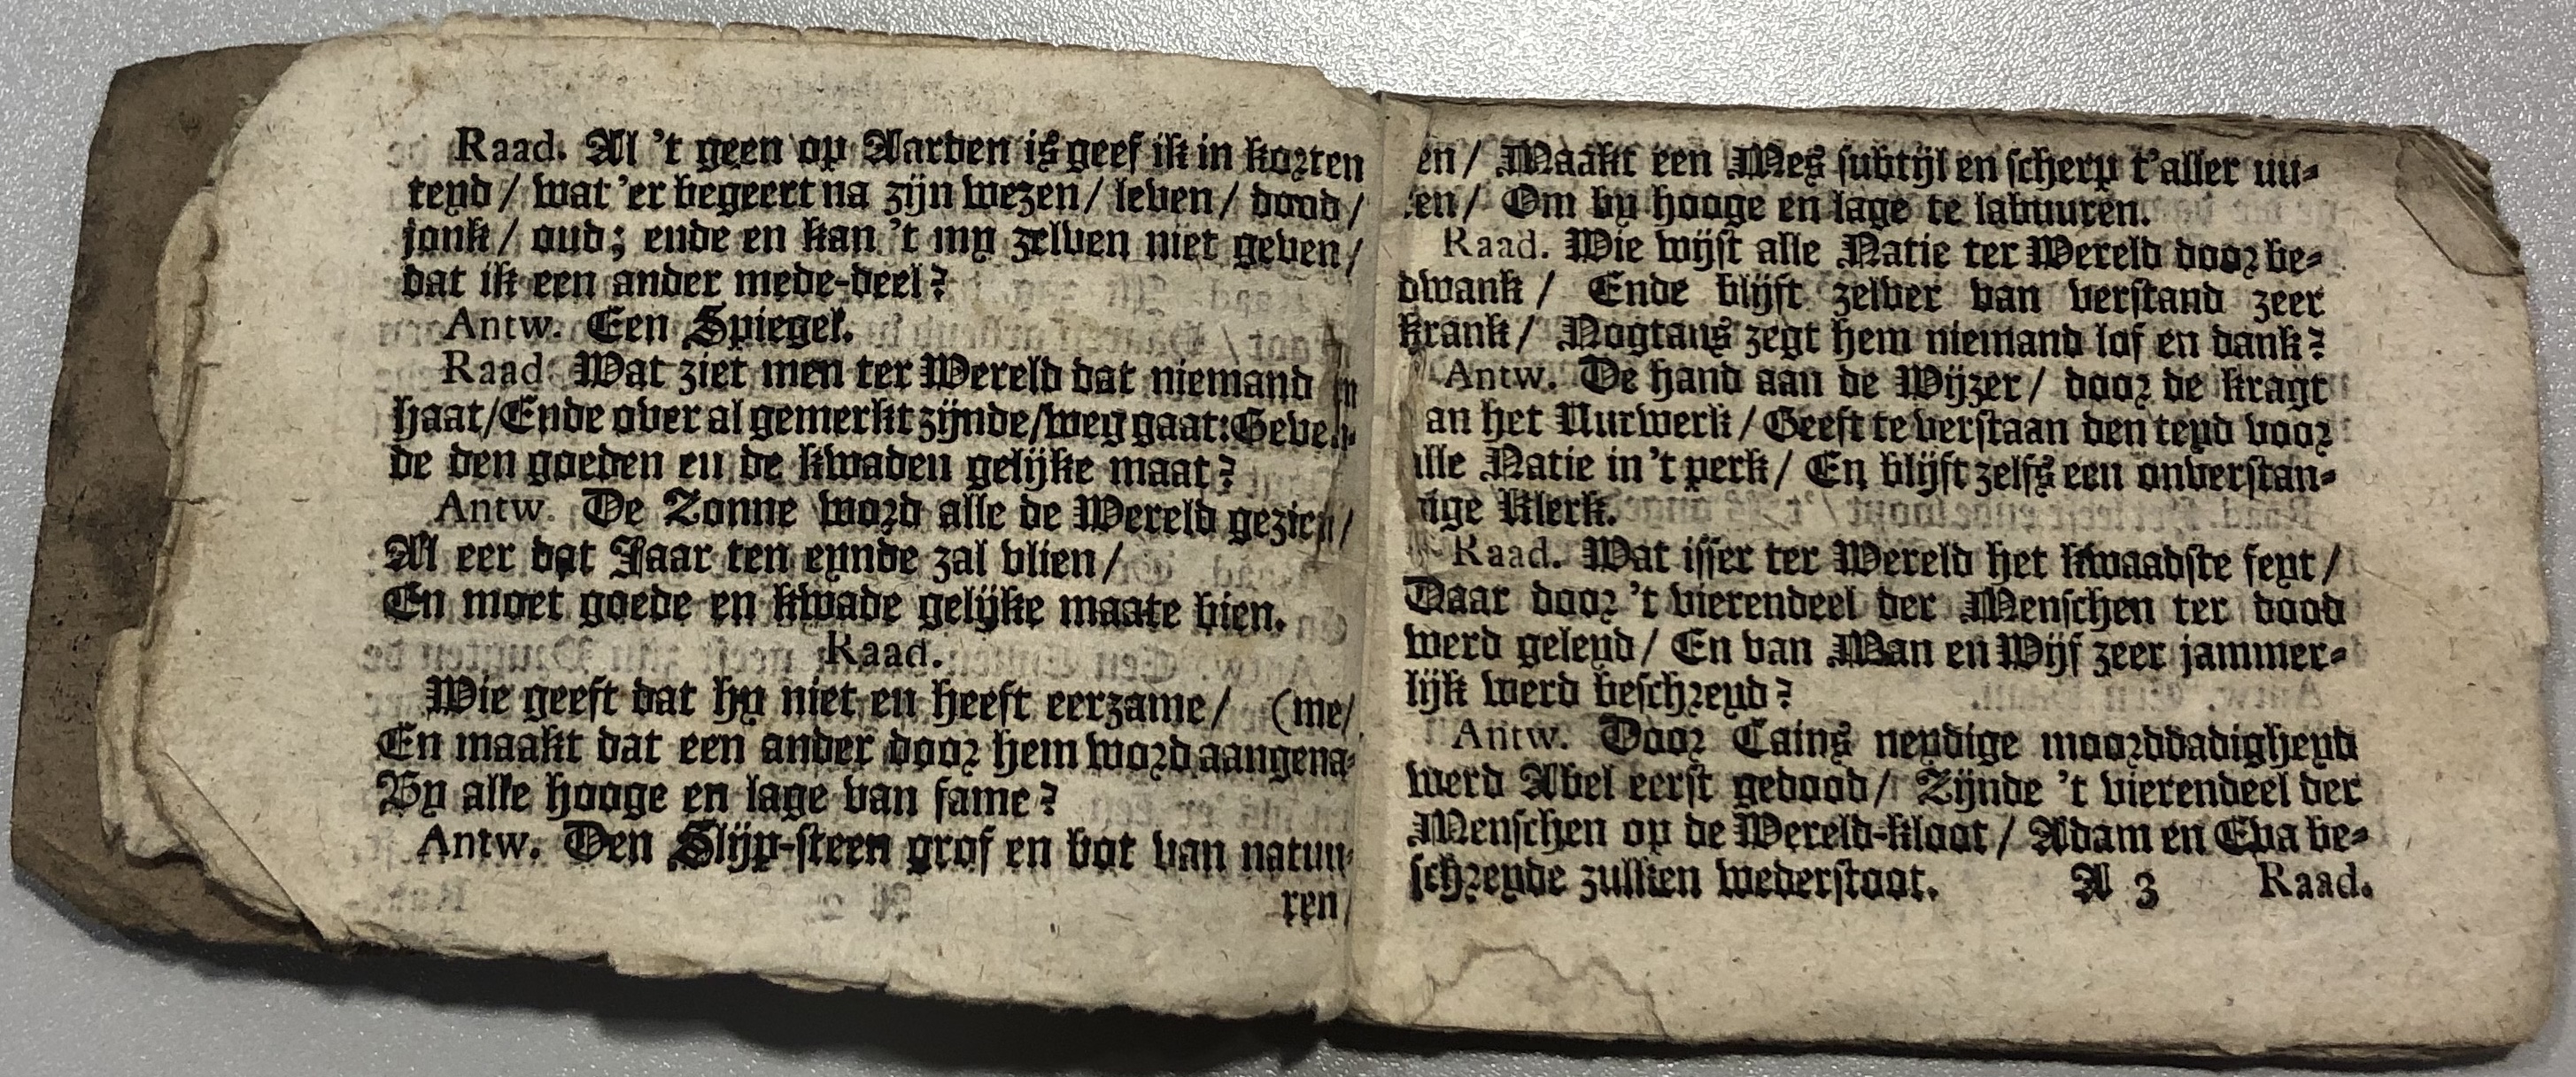 Raad. Al 't geen op Aarden is geef ik in korten
teyd / wat 'er begeert na zijn wezen / leven / dood /
jonk / oud; ende en kan 't my zelven niet geven /
dat ik een ander mede-deel?
Antw. Een Spiegel.
Raad. Wat ziet men ter Wereld dat niemand en
haat / Ende over al gemerkt zijnde / weg gaat: Geven-
de den goeden en de kwaden gelijke maat?
Antw. De Zonne word alle de Wereld gezien /
Al eer dat Jaar ten eynde zal vlien /
En moet goede en kwade gelijke maate bien.
Raad.
Wie geeft dat hy niet en heeft eerzame / (me /
En maakt dat een ander door hem word aangena-
By alle hooge en lage van fame?
Antw. Den Slijp-steen grof en bot van natuu-
ren /
en / Maakt een Mes subtijl en scherp t'aller uu-
en / Om by hooge en lage te labuuren.
Raad. Wie wijst alle Natie ter Wereld door be-
dwank / Ende blijft zelver van verstand zeer
krank / Nogtans zegt hem niemand lof en dank?
Antw. De hand aan de Wijzer / door de kragt
an het Uurwerk / Geeft te verstaan den teyd voor
alle Natie in 't perk / En blijft zelfs een onverstan-
dige Klerk.
Raad. Wat isser ter Wereld het kwaadste feyt /
Daar door 't vierendeel der Menschen ter dood
werd geleyd / En van Man en Wijf zeer jammer-
lijk werd beschreyd?
Antw. Door Cains neydige moorddadigheyd
werd Abel eerst gedood / Zijnde 't vierendeel der
Menschen op de Wereld-kloot / Adam en Eva be-
schreyde zulken wederstoot. A 3 Raad.